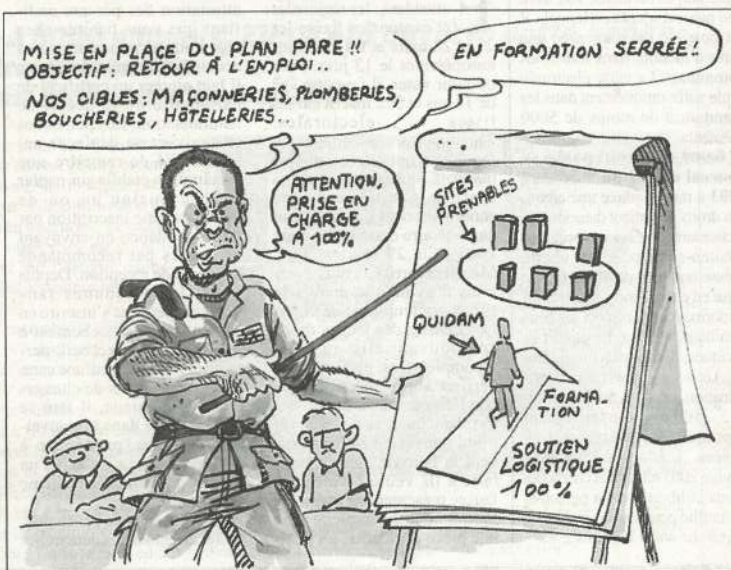 MISE EN PLACE DU PLAN PARE!!
OBJECTIF: RETOUR À L'EMPLOI..
NOS CIBLES: MAÇONNERIES, PLOMBERIES,
BOUCHERIES, HÔTELLERIES..
EN FORMATION SERRÉE!
ATTENTION,
PRISE EN
CHARGE
À 100%
SITES
PRENABLES
QUIDAM
FORMA-
TION
SOUTIEN
LOGISTIQUE
100%